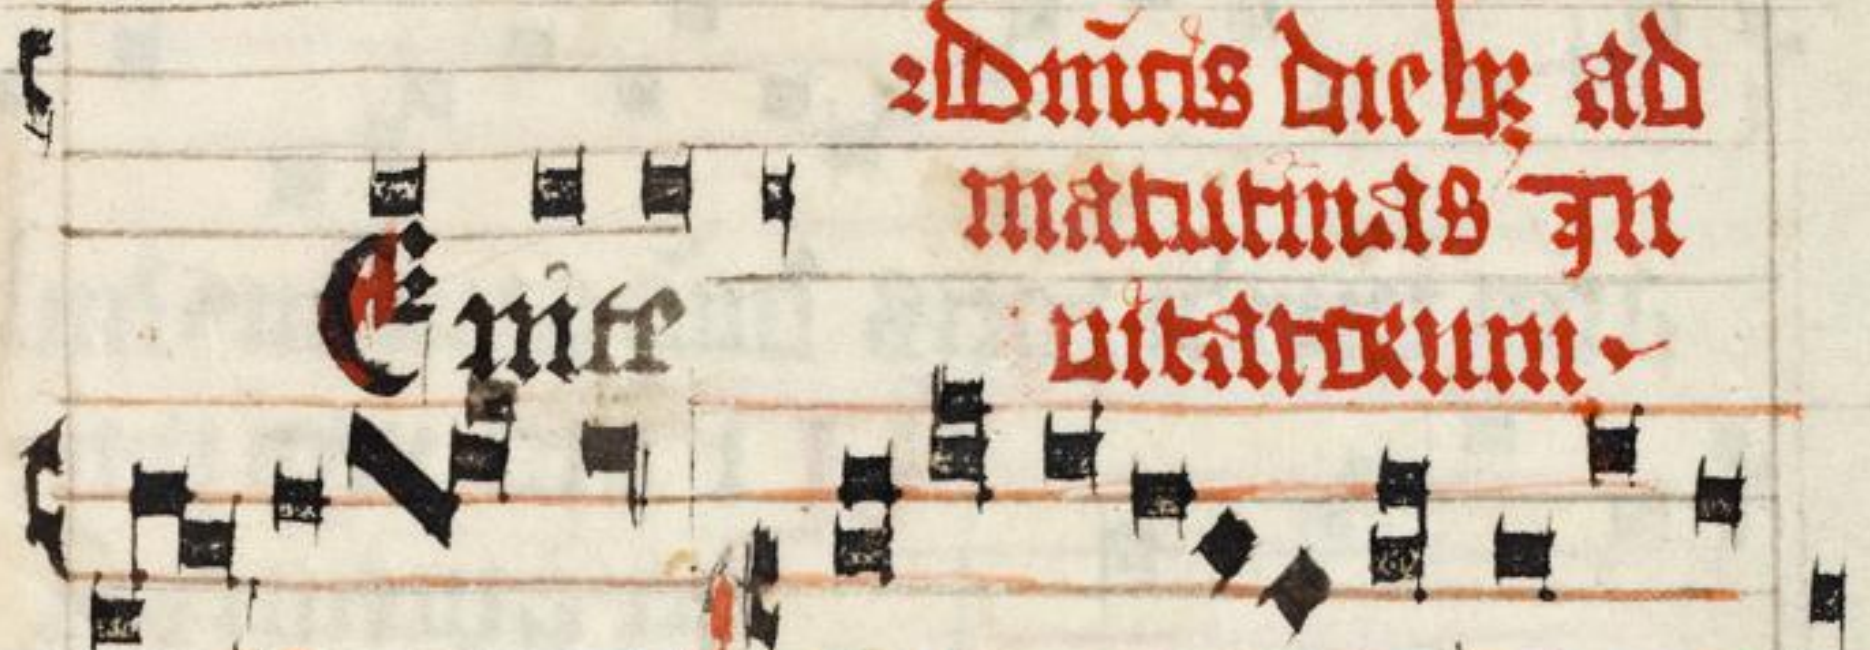 Dnicis dieb ad
matutinas In
vitatorium
Enite